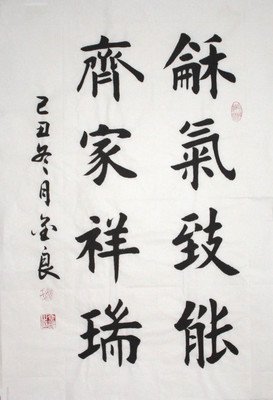 龢氣致能
齊家祥瑞
己丑冬月金良